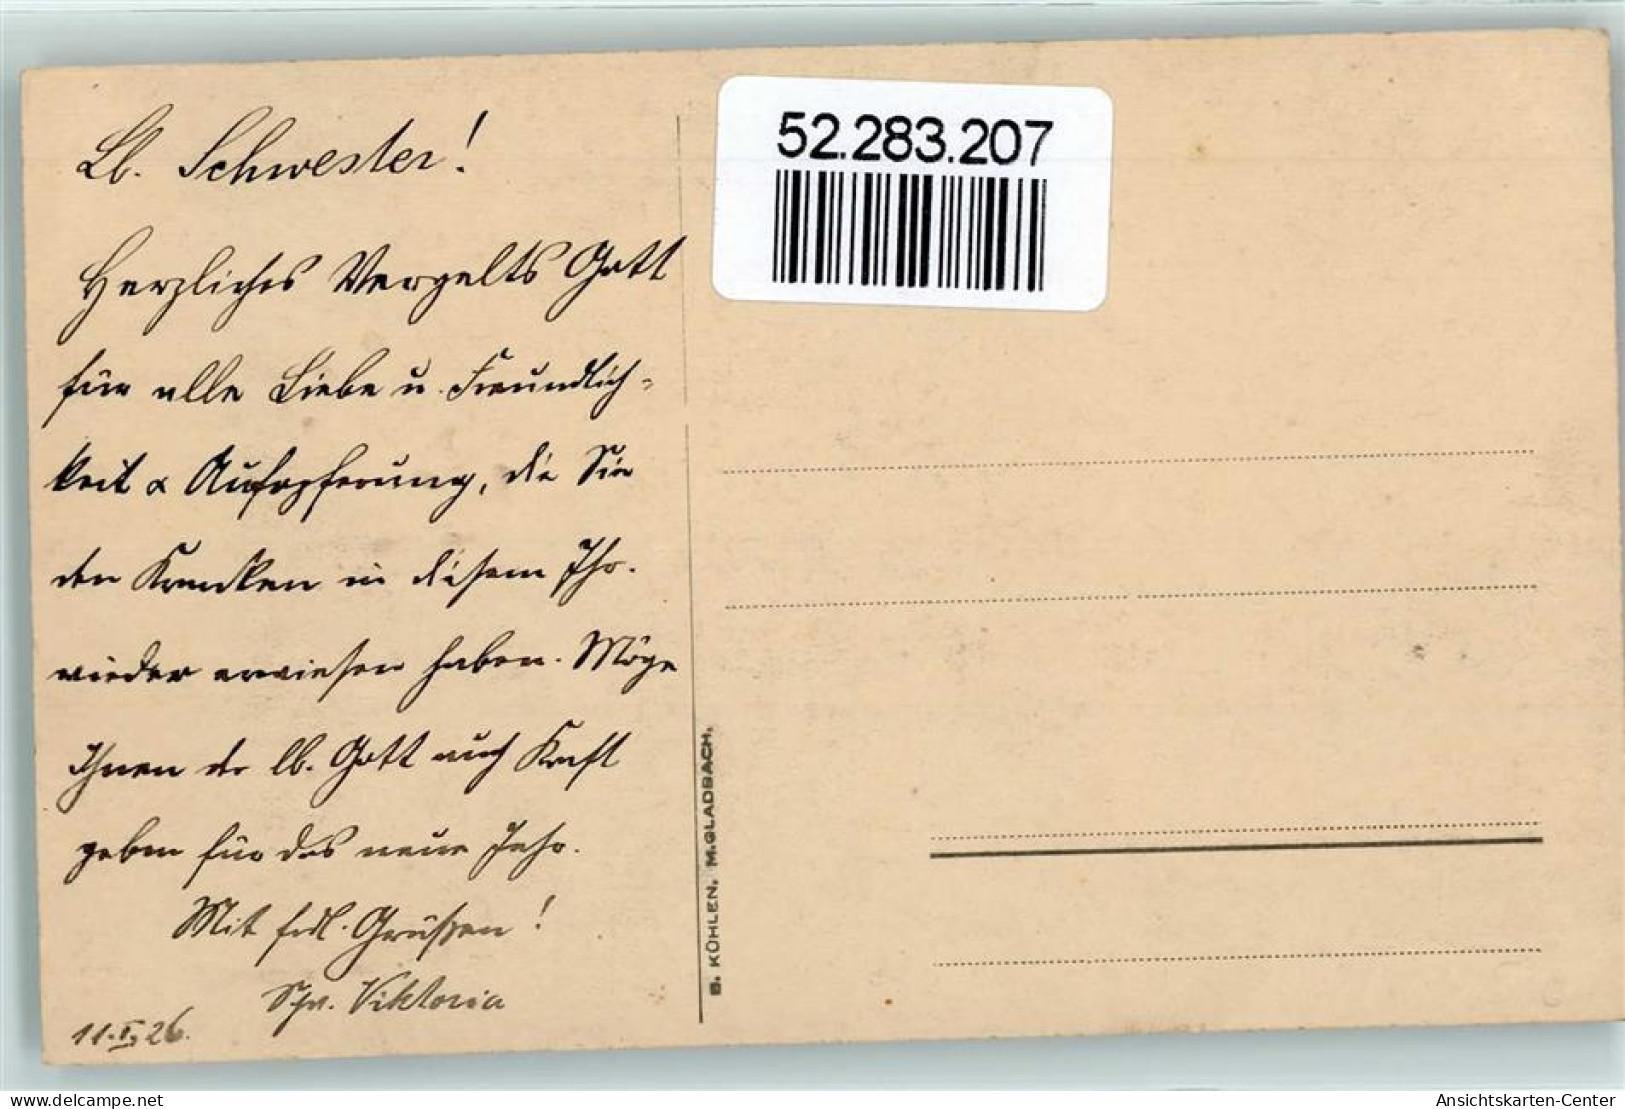 Lb. Schwester!
Herzliches Vergelts Gott
für alle Liebe u. Freundlich-
keit & Aufopferung, die Sie
den Kranken in diesem Jhr.
wieder erwiesen haben. Möge
Ihnen der lb. Gott auch Kraft
geben für das neue Jahr.
Mit frdl. Grüßen!
Schw. Viktoria
11.I.26.
52.283.207
B. KÜHLEN, M.GLADBACH.
Ansichtskarten-Center